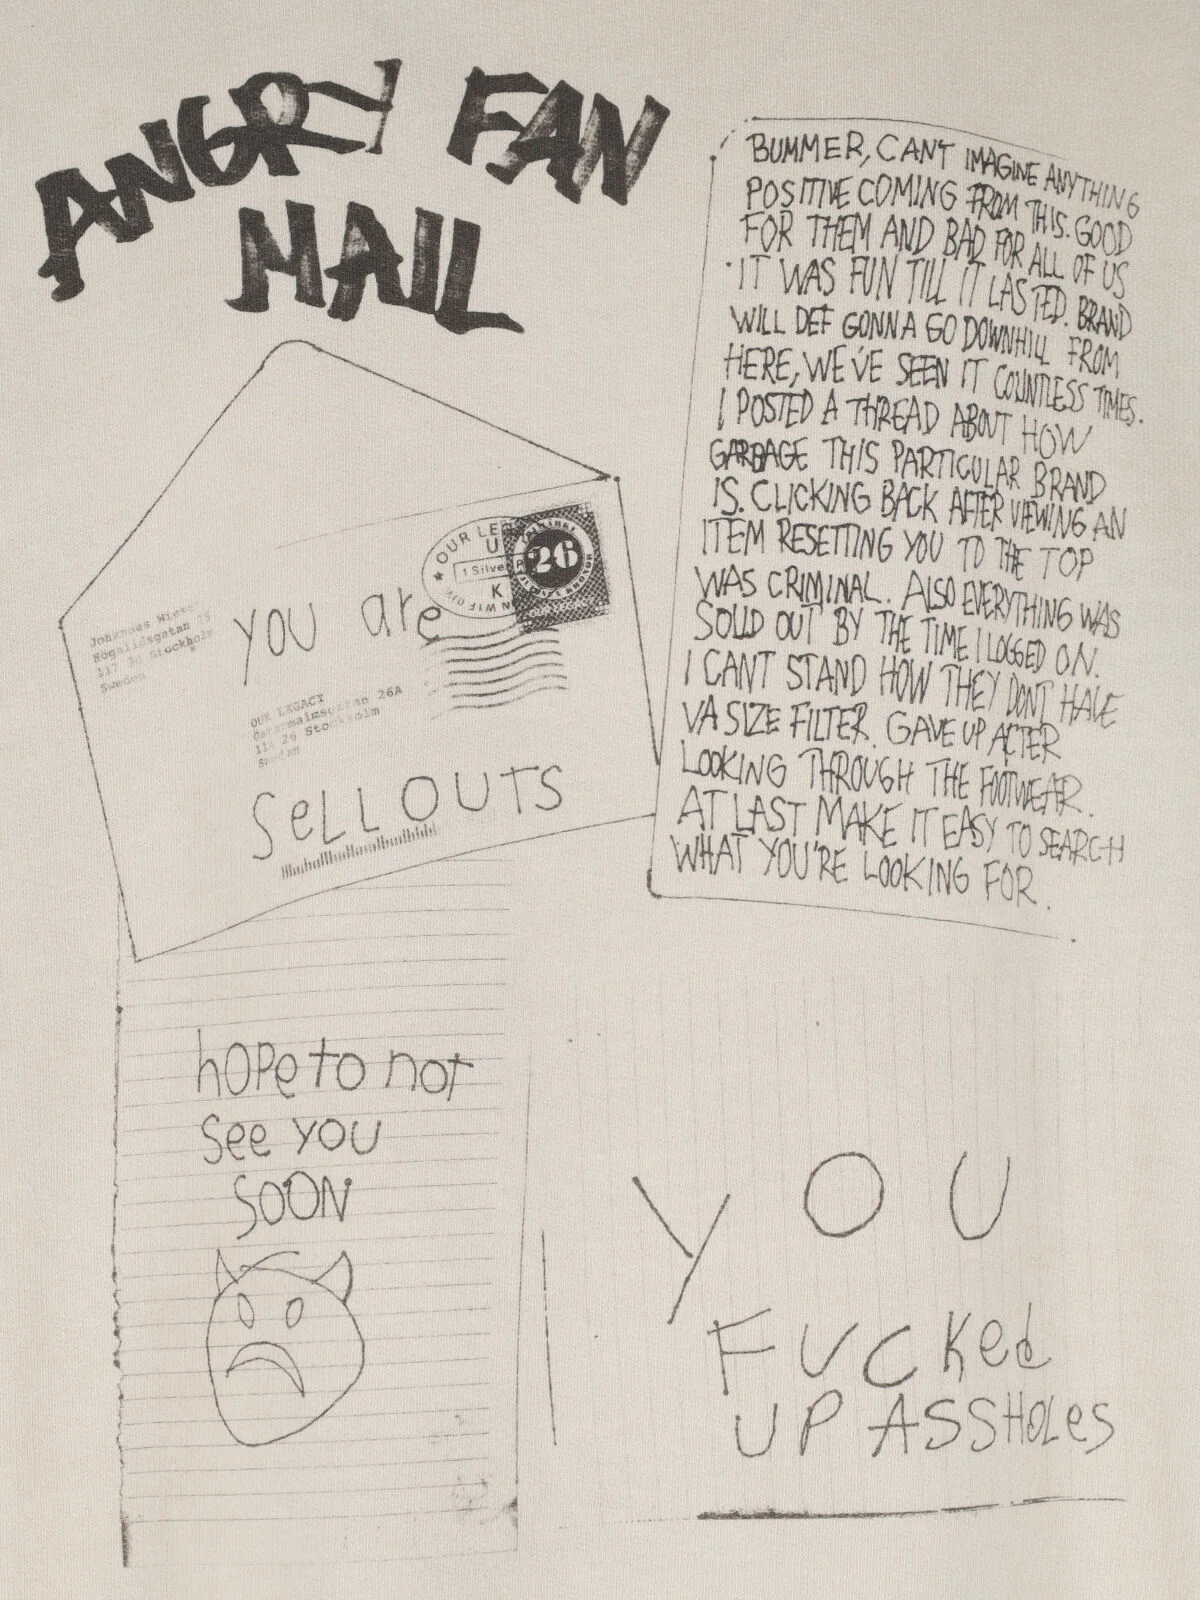 ANGRY FAN
MAIL
BUMMER, CAN'T IMAGINE ANYTHING
POSITIVE COMING FROM THIS. GOOD
FOR THEM AND BAD FOR ALL OF US
IT WAS FUN TILL IT LASTED. BRAND
WILL DEF GONNA GO DOWNHILL FROM
HERE, WE'VE SEEN IT COUNTLESS TIMES.
I POSTED A THREAD ABOUT HOW
GARBAGE THIS PARTICULAR BRAND
IS. CLICKING BACK AFTER VIEWING AN
ITEM RESETTING YOU TO THE TOP
WAS CRIMINAL. ALSO EVERYTHING WAS
SOLD OUT BY THE TIME I LOGGED ON.
I CANT STAND HOW THEY DONT HAVE
VA SIZE FILTER. GAVE UP AFTER
LOOKING THROUGH THE FOOTWEAR.
AT LAST MAKE IT EASY TO SEARCH
WHAT YOU'RE LOOKING FOR.
OUR LE
U
1 Silve
K
26
Johannes Wiese
Högalidsgatan
117 30 Stockholm
Sweden
YOU are
OUR LEGACY
Östermalmsgatan 26A
114 26 Stockholm
Sweden
SeLLOUTS
hOPe to not
See YOU
SOON
YOU
FUCKed
UP ASSHOLeS